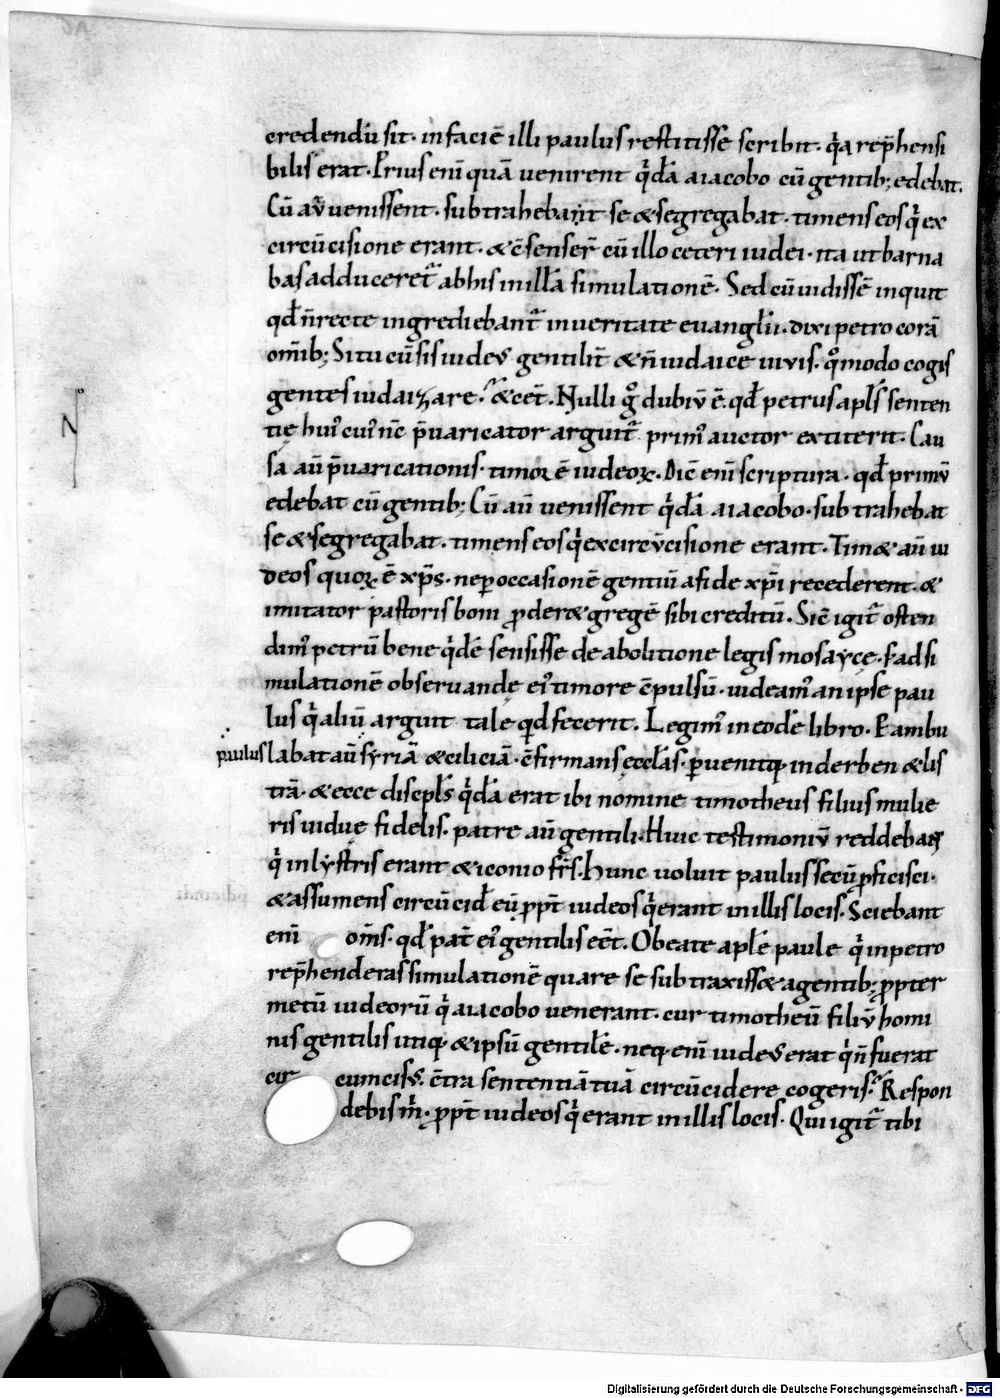 credendū sit· in faciē illi paulus restitisse scribit· q̇a rep̄hensi
bilis erat· Prius enī quā uenirent q̇dā a iacobo cū gentib; edebat.
Cū aū uenissent· subtrahebat se & segregabat· timens eos q̇ ex
circūcisione erant· & c̄senser̄ cū illo ceteri iudei· ita ut barna
bas adduceret᷑ ab his in illā simulationē· Sed cū uidissē inquit
qd̄ n̄ recte ingrediebant᷑ in ueritate euangl̄ii· dixi petro corā
om̄ib; Si tu cū sis iudeus gentilit̄ & n̄ iudaice uiuis· qͦmodo cogis
gentes iudaizare? & cet̄· Nulli gͦ dubiū ē· qd̄ petrus apl̄s senten
tię huiꝰ cuiꝰ nc̄ p̄uaricator arguit᷑ primꝰ auctor extiterit· Cau
sa aū p̄uaricationis· timor ē iudeoꝝ· Dic̄ enī scriptura· qd̄ primū
edebat cū gentib; Cū aū uenissent q̇dā a iacobo· subtrahebat
se & segregabat· timens eos q̇ ex circūcisione erant· Tim& aū iu
deos quoꝝ ē xp̄s· ne ꝑ occasionē gentiū a fide xp̄i recederent· &
imitator pastoris boni ꝑder& gregē sibi creditū· Sic̄ igit᷑ osten
dimꝰ petrū bene q̇dē sensisse de abolitione legis mosaycę· s; ad si
mulationē obseruandę eiꝰ timore c̄pulsū· uideamꝰ an ipse pau
lus q̇ aliū arguit tale qd fecerit· Legimꝰ in eodē libro· Ꝑambu
paulus labat aū syriā & ciliciā· c̄firmans ęccl̄as· ꝑuenitq; in derben & lis
trā· & ecce discipl̄s q̇dā erat ibi nomine timotheus filius mulie
ris uidue fidelis· patre aū gentili· Huic testimoniū reddebant
q̇ in lystris erant & iconio fr̄s· Hunc uoluit paulus secū ꝓficisci·
& assumens circūcid̄ eū ꝓpt̄ iudeos q̇ erant in illis locis· Sciebant
enī om̄s· qd̄ pat̄ eiꝰ gentilis eēt· O beate aplē paule q̇ in petro
rep̄henderas simulationē quare se subtraxiss& a gentib; ꝓpter
metū iudeorū q̇ a iacobo uenerant· cur timotheū filiū homi
nis gentilis utiq; & ipsū gentilē· neq; enī iudeus erat q̇ n̄ fuerat
cir cumcisus· c̄tra sententiā tuā circūcidere cogeris? Respon
debis m̄· ꝓpt̄ iudeos q̇ erant in illis locis· Qui igit᷑ tibi
Digitalisierung gefördert durch die Deutsche Forschungsgemeinschaft - DFG